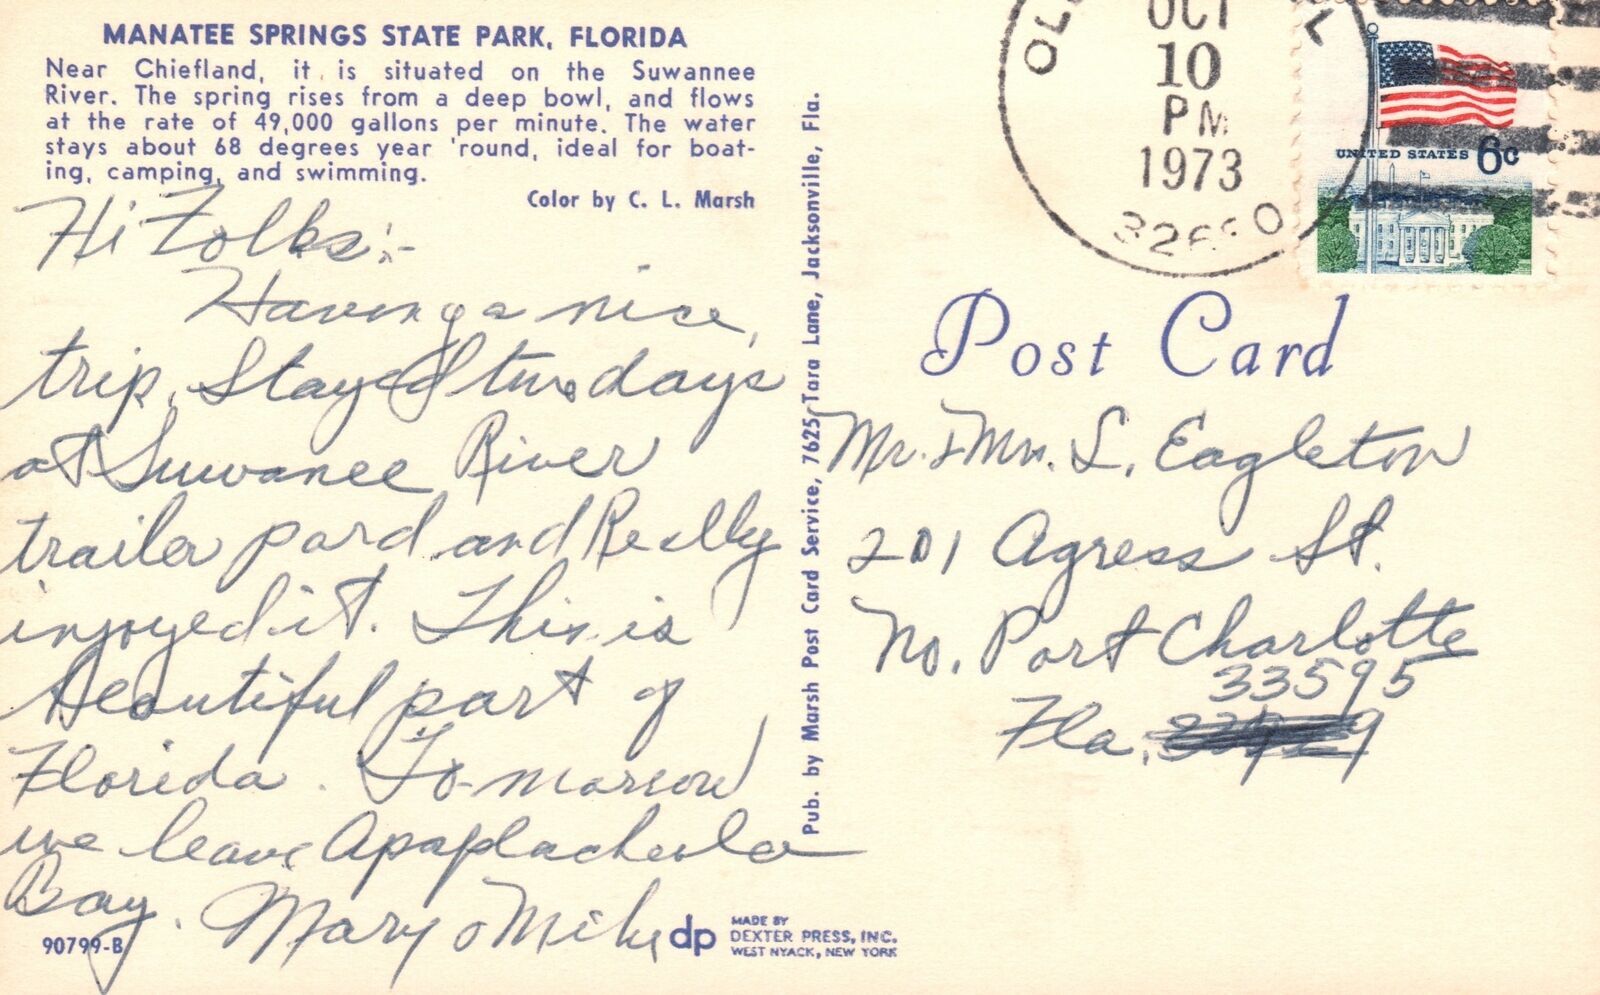 MANATEE SPRINGS STATE PARK, FLORIDA
Near Chiefland, it is situated on the Suwannee
River. The spring rises from a deep bowl, and flows
at the rate of 49,000 gallons per minute. The water
stays about 68 degrees year 'round, ideal for boat-
ing, camping, and swimming.
Color by C. L. Marsh
Hi Folks:-
Having a nice
trip. Stayed two days
at Suwanee River
trailer pard and Really
injoyed it. This is
beautiful part of
Florida. To-morrow
we leave Apaplachecola
Bay. Mary & Mike
90799-B
dp
MADE BY
DEXTER PRESS, INC.
WEST NYACK, NEW YORK
Pub. by Marsh Post Card Service, 7625 Tara Lane, Jacksonville, Fla.
OCT
10
PM
1973
UNITED STATES 6c
Post Card
Mr. & Mrs. L. Eagleton
201 Agress St.
No. Port Charlotte
33595
Fla.